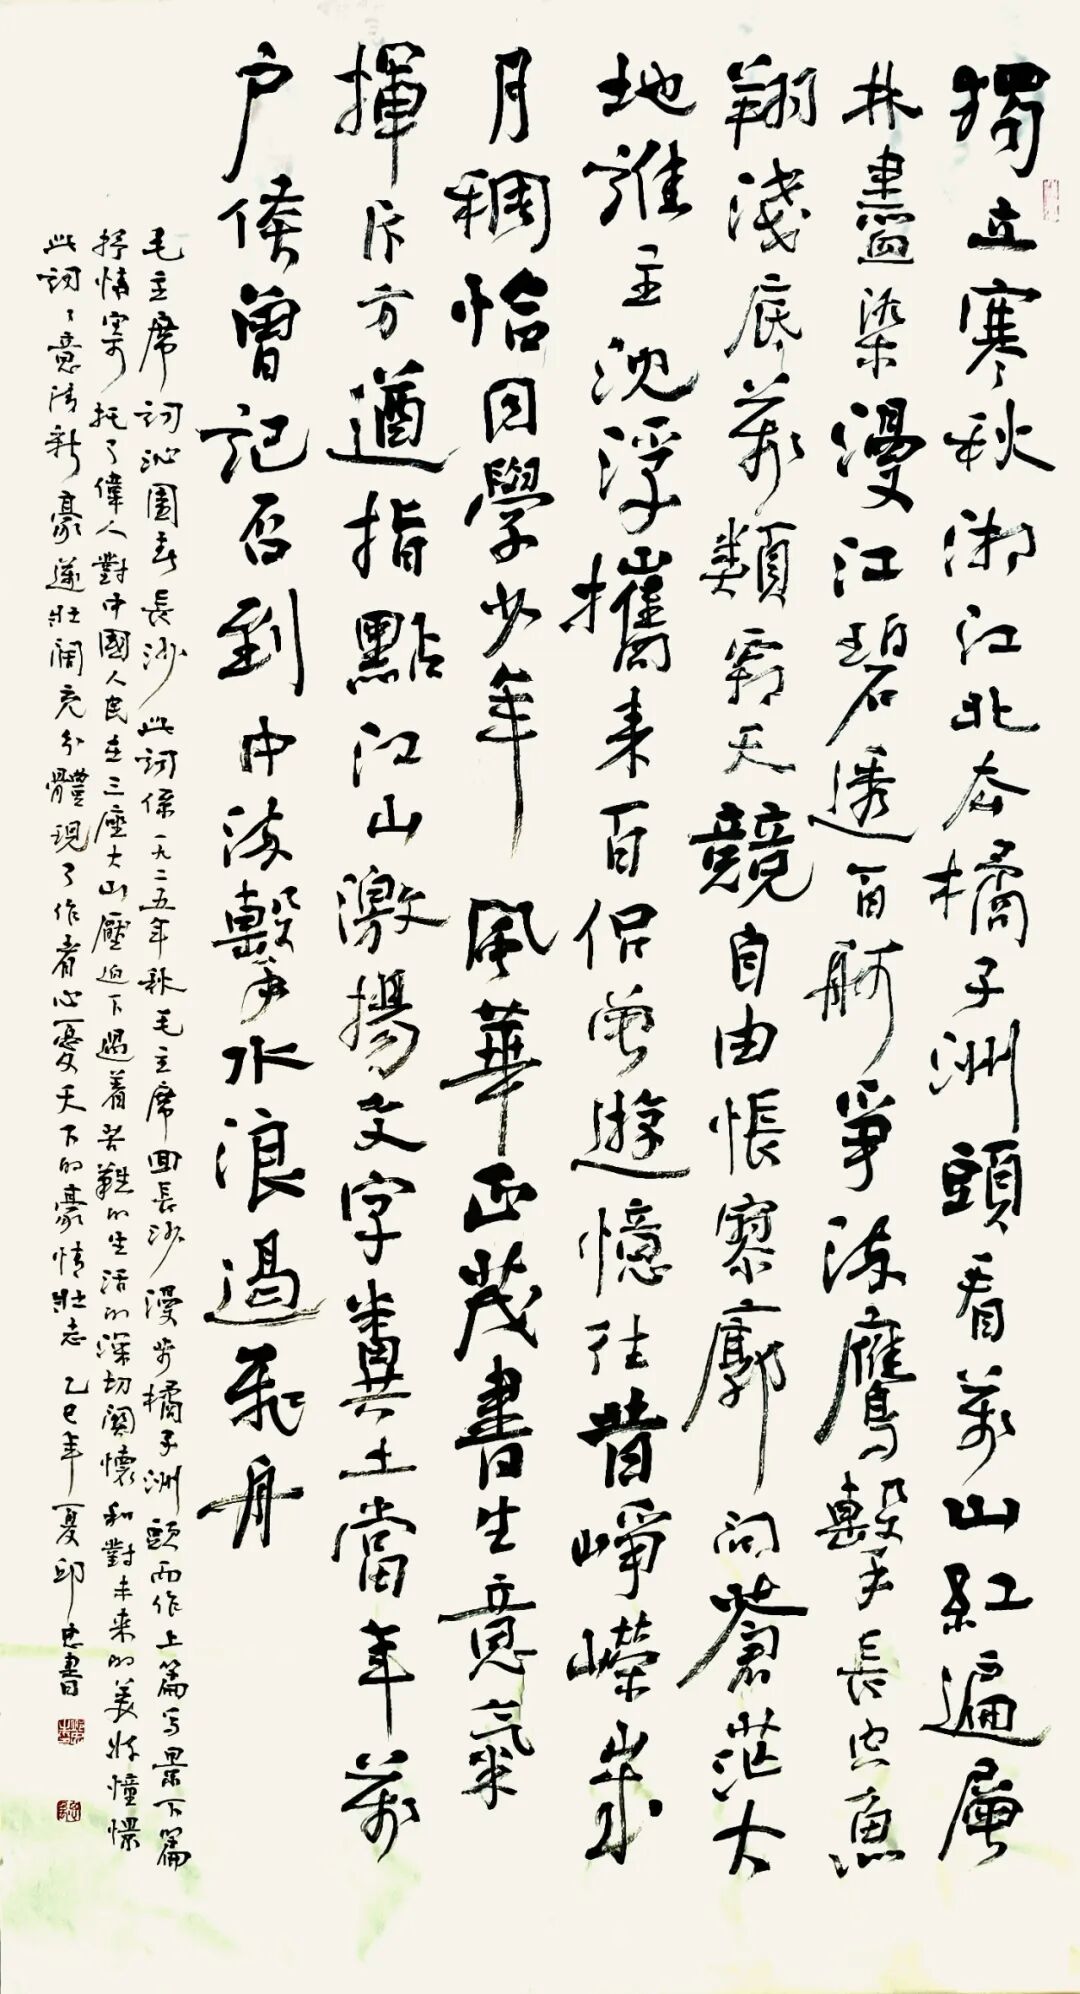 獨立寒秋湘江北去橘子洲頭看萬山紅遍層
林盡染漫江碧透百舸爭流鷹擊長空魚
翔淺底萬類霜天競自由悵寥廓問蒼茫大
地誰主沈浮攜来百侣曾遊憶往昔崢嶸歲
月稠恰同學少年風華正茂書生意氣
揮斥方遒指點江山激揚文字糞土當年萬
户侯曾記否到中流擊水浪遏飛舟
毛主席詞沁園春長沙此詞係一九二五年秋毛主席回長沙漫步橘子洲頭而作上篇写景下篇
抒情寄托了偉人對中國人民在三座大山壓迫下過着苦難的生活的深切關懷和對未来的美好憧憬
此詞々意清新豪邁壯阔充分體現了作者心憂天下的豪情壯志 乙巳年夏邱忠書